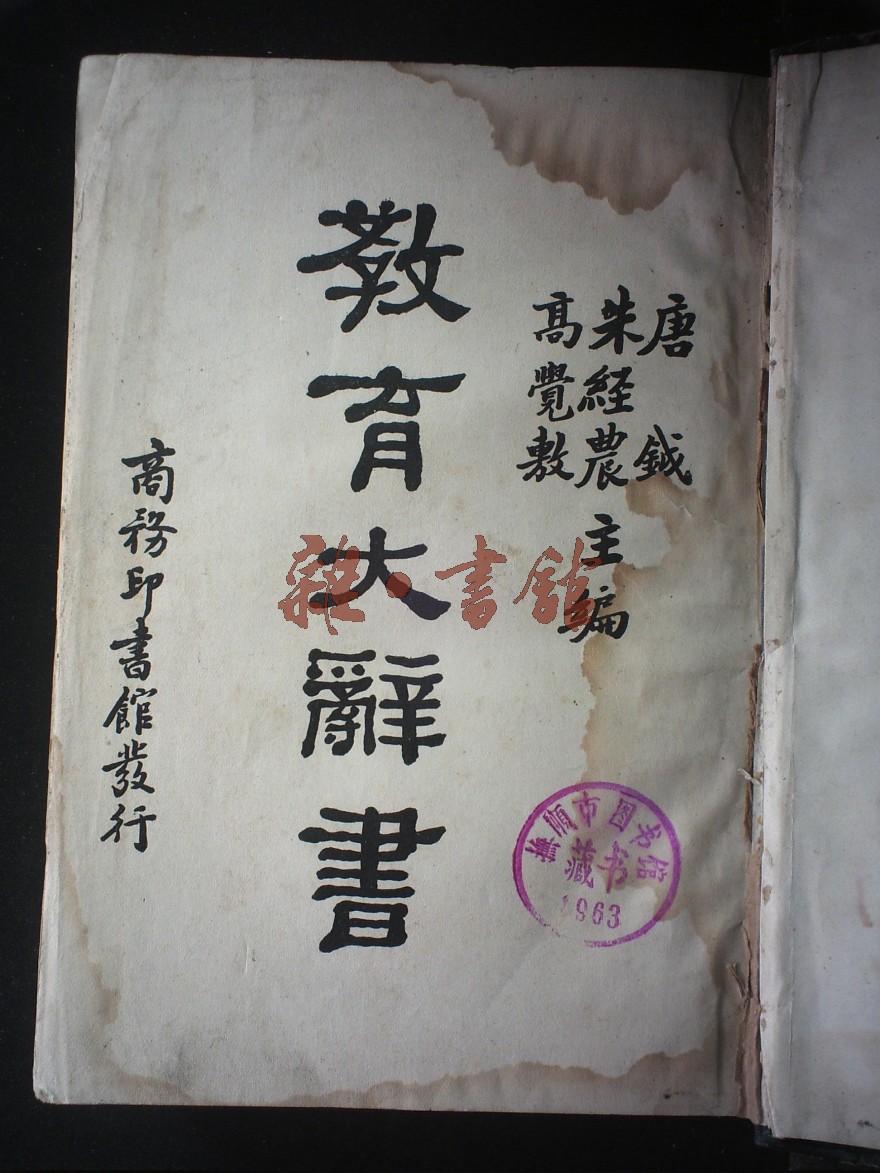 唐鉞
朱経農
高覺敷
主編
教育大辭書
商務印書館發行
撫順市图书館
藏书
1963
雜·書館